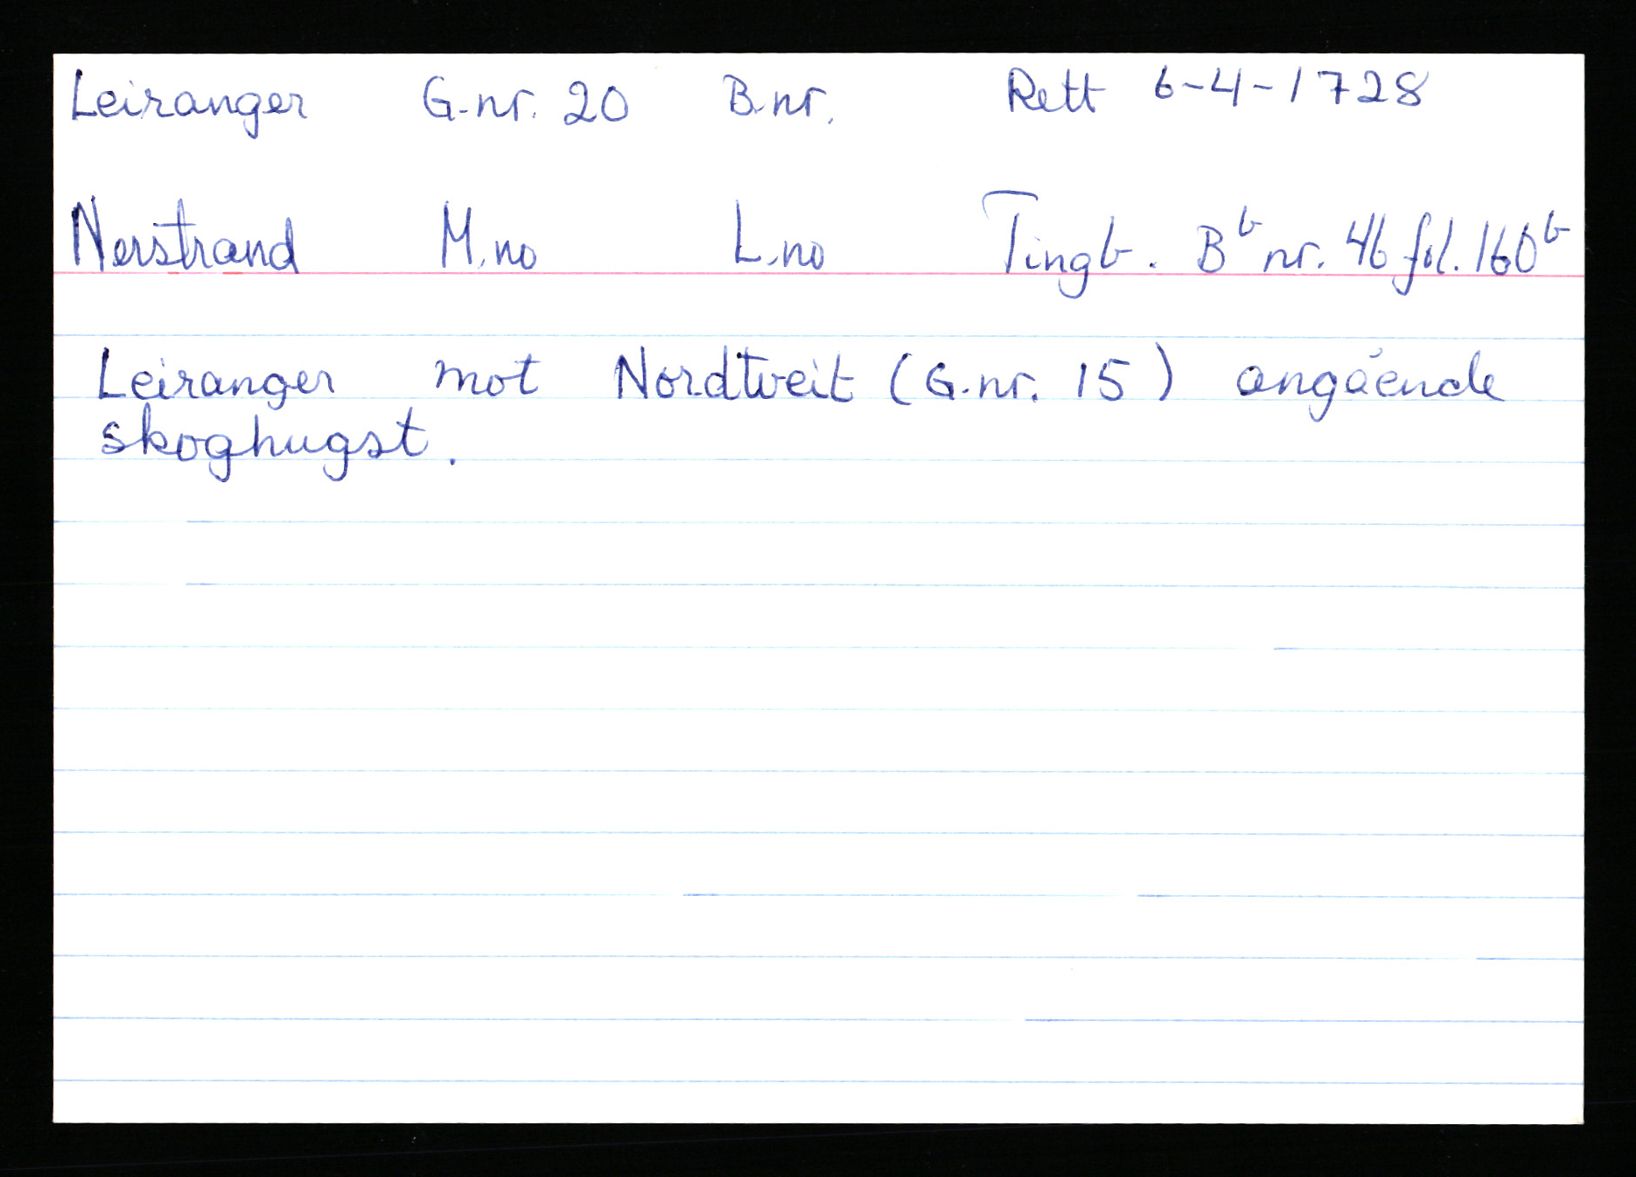 Leiranger G.nr. 20 B.nr. Rett 6-4-1728
Nerstrand M.no L.no Tingb. Bb nr. 46 fol. 160b
Leiranger mot Nordtveit (G.nr. 15) angående
skoghugst.